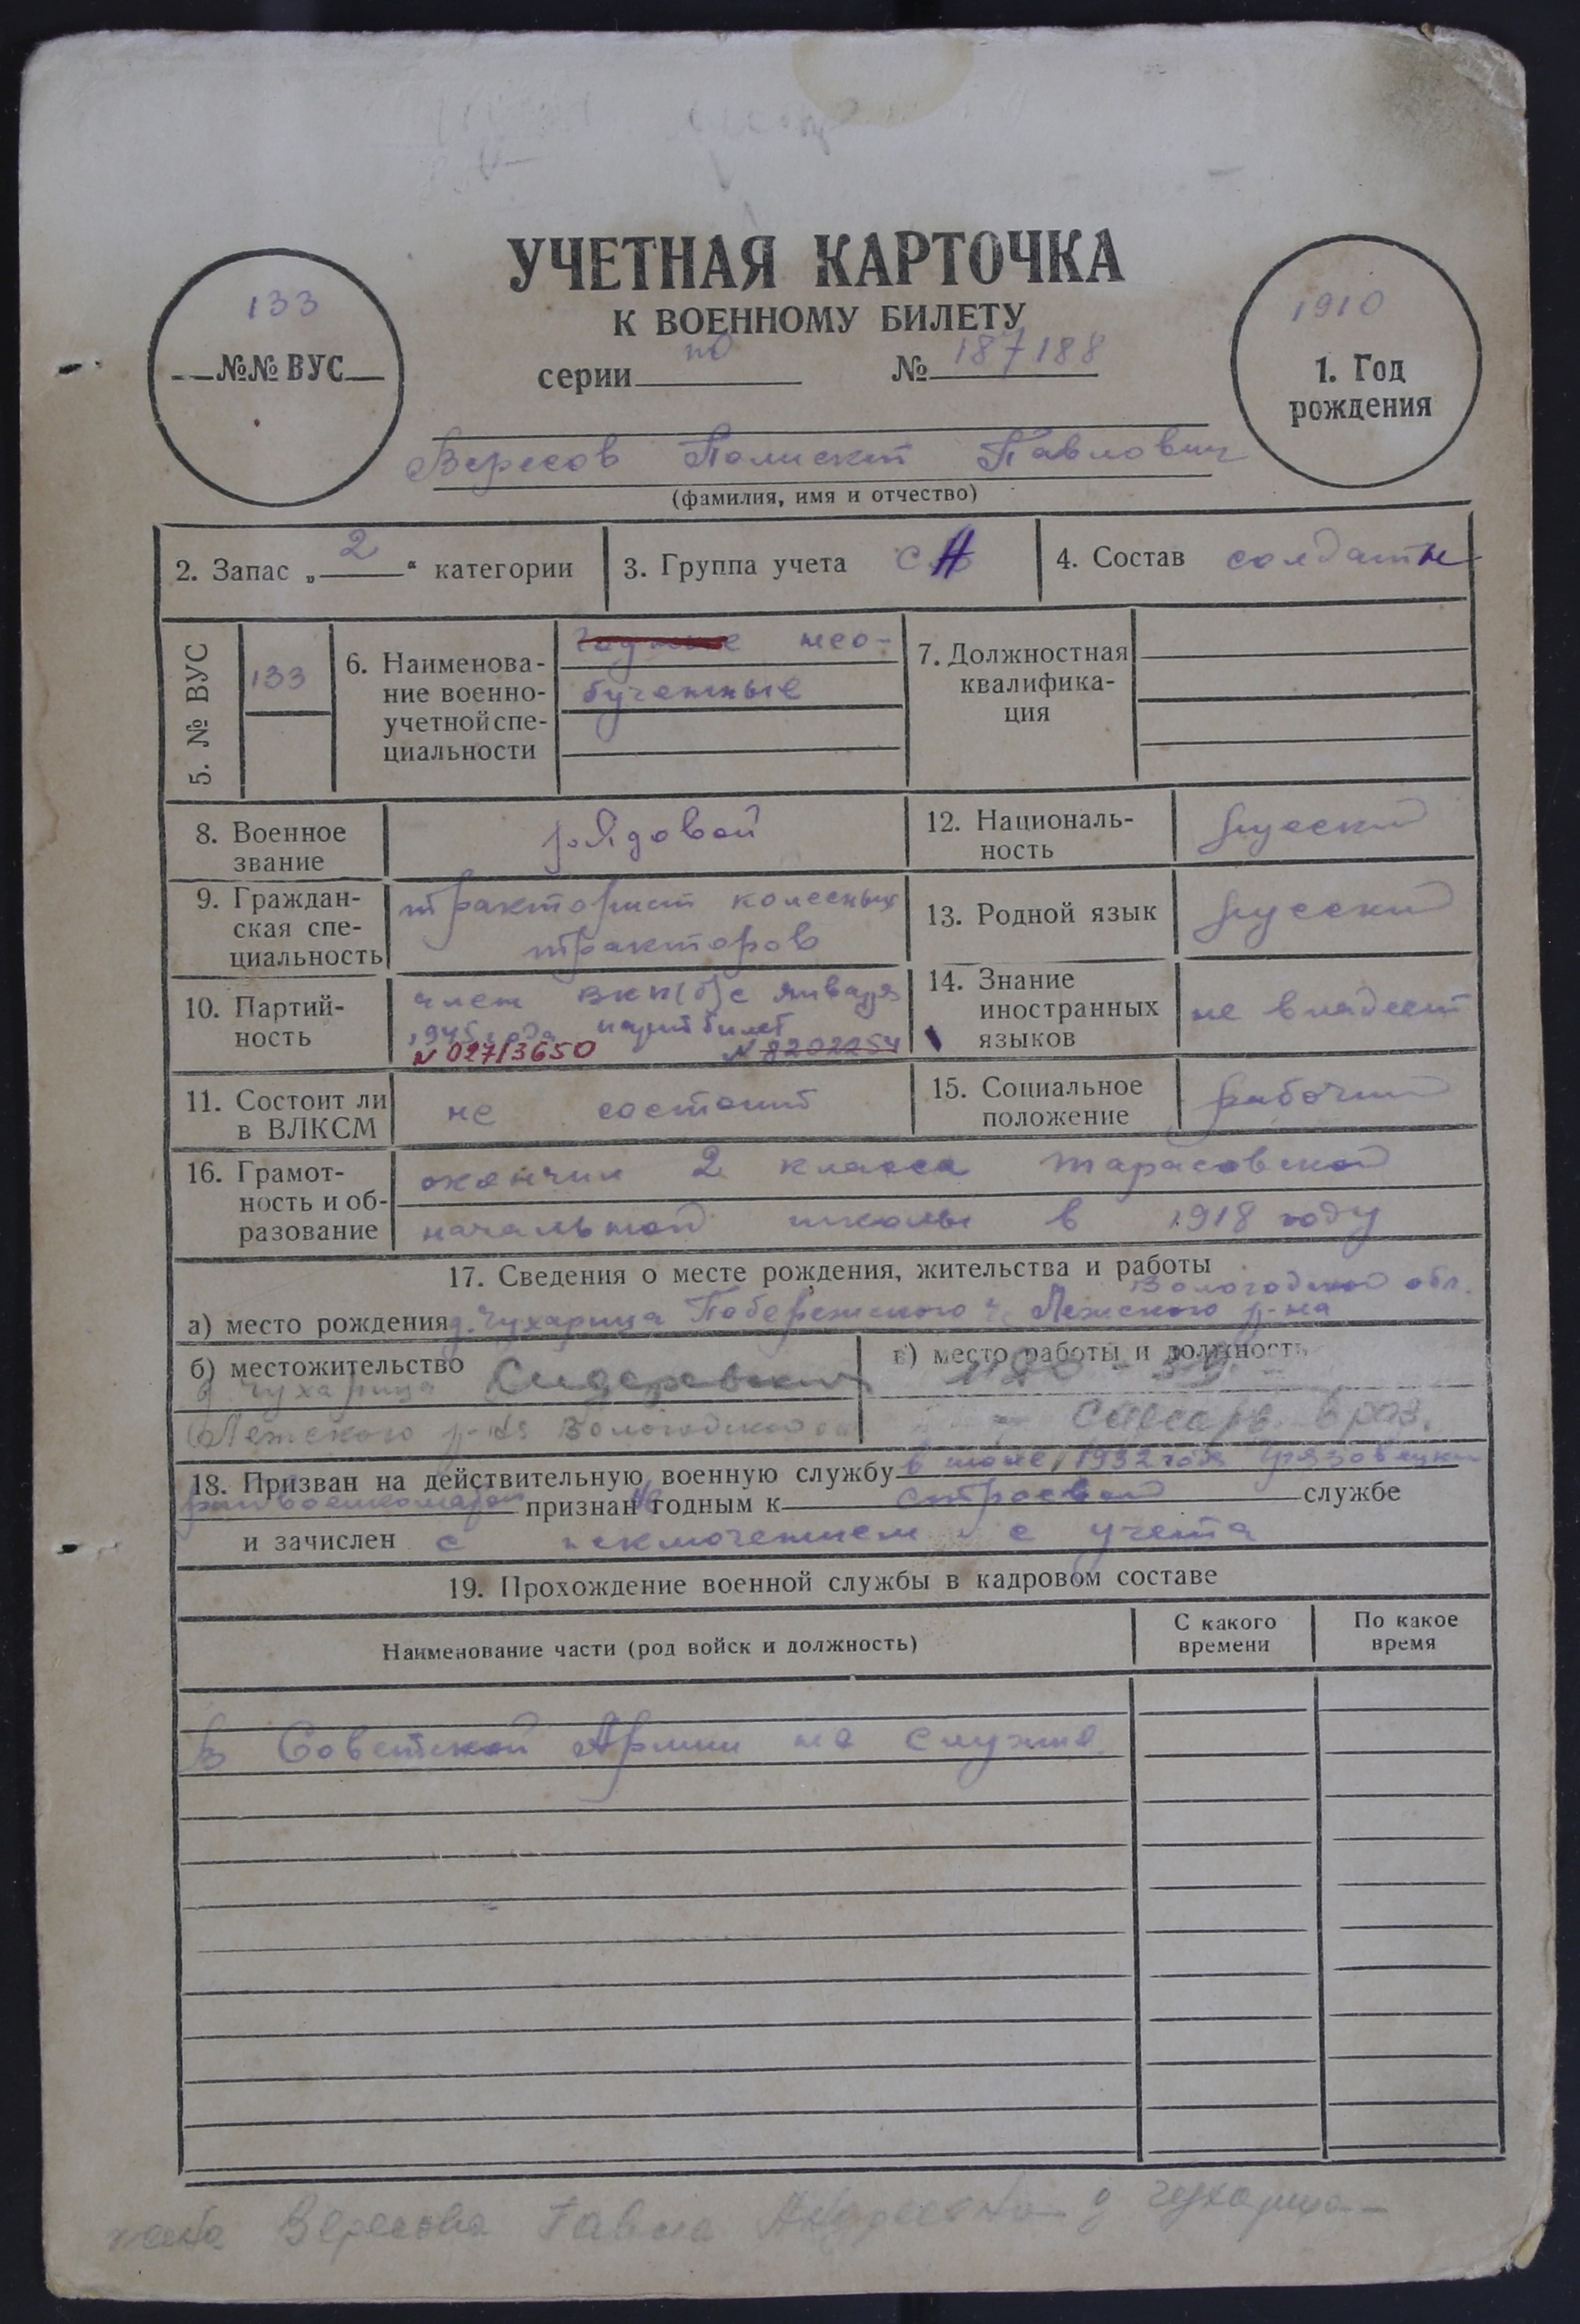 УЧЕТНАЯ КАРТОЧКА
К ВОЕННОМУ БИЛЕТУ
133
№№ ВУС
серии по № 187188
1910
1. Год
рождения
Вересов Полиект Павлович
(фамилия, имя и отчество)
2. Запас „2“ категории
3. Группа учета СА
4. Состав солдаты
5. № ВУС
133
6. Наименова-
ние военно-
учетной спе-
циальности
годные нео-
бученные
7. Должностная
квалифика-
ция
8. Военное
звание
рядовой
12. Националь-
ность
русский
9. Граждан-
ская спе-
циальность
тракторист колесных
тракторов
13. Родной язык
русский
10. Партий-
ность
член ВКП(б) с января
1945 года партбилет
№ 02713650 № 8202254
14. Знание
иностранных
языков
не владеет
11. Состоит ли
в ВЛКСМ
не состоит
15. Социальное
положение
рабочий
16. Грамот-
ность и об-
разование
окончил 2 класса Тарасовской
начальной школы в 1918 году
17. Сведения о месте рождения, жительства и работы
Вологодской обл.
а) место рождения д. Чухарица Побережского Лежского р-на
б) местожительство
д. Чухарица
Лежского р-на Вологодской
в) место работы и должность
18. Призван на действительную военную службу в июне 1932 года Грязовецким
райвоенкоматом признан не годным к строевой службе
и зачислен с исключением с учета
19. Прохождение военной службы в кадровом составе
Наименование части (род войск и должность)
С какого
времени
По какое
время
В Советской Армии не служил
жена Вересова Павла Андреевна д Чухарица